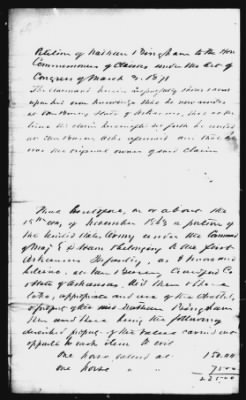 Petition of Nathan Bingham to the Hon
Commissioners of Claims under the Act of
Congress of March 3. 1871
The claimant herein respectfully shows
upon his own knowledge that he now resides
at Van Buren State of Arkansas, that at the
time his claim he resided
at Van Buren and that he
was the original owner of said claim
That heretofore, on or about the
15th day of November 1863 a portion of
the United States Army under the Command
of Maj E S Ham belonging to the first
Arkansas Infantry, at
at Van Buren Crawford Co
State of Arkansas, did then & there
take, appropriate and use of the Chattels,
& property of the said Nathan Bingham
then and there being the following
described property of the values carried out
opposite to each item to wit
One horse valued at 150.00
One horse " " 75.00
225.00